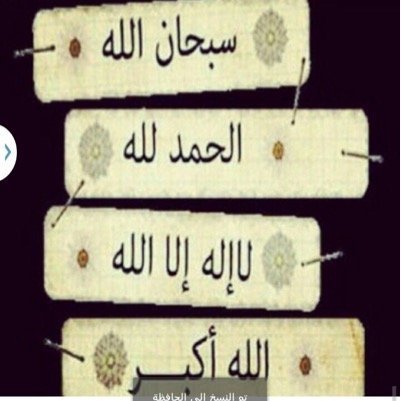 سبحان الله
الحمد لله
لاإله إلا الله
الله أكبـر
تم النسخ إلى الحافظة